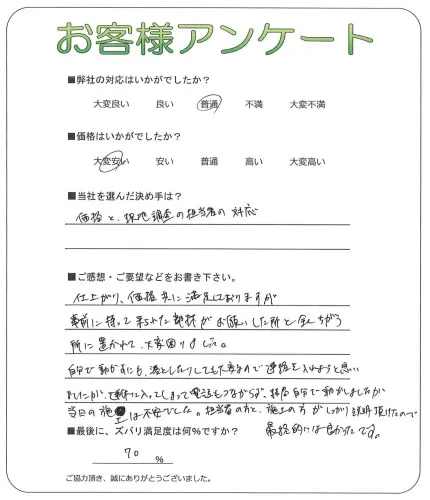 お客様アンケート
■弊社の対応はいかがでしたか？
大変良い 良い 普通 不満 大変不満
■価格はいかがでしたか？
大変安い 安い 普通 高い 大変高い
■当社を選んだ決め手は？
価格と、現地調査の担当者の対応
■ご感想・ご要望などをお書き下さい。
仕上がり、価格共に満足しておりますが
事前に持って来られた部材がお願いした所と全くちがう
所に置かれて、大変困りました。
自分で動かすにも、落としたりしても大変なので連絡を入れようと思い
ましたが、連休に入ってしまって電話もつながらず、結局自分で動かしましたが
当日の施工は不安でした。担当者の方と、施工の方がしっかり説明頂けたので
最終的には良かったです。
■最後に、ズバリ満足度は何%ですか？
70 %
ご協力頂き、誠にありがとうございました。